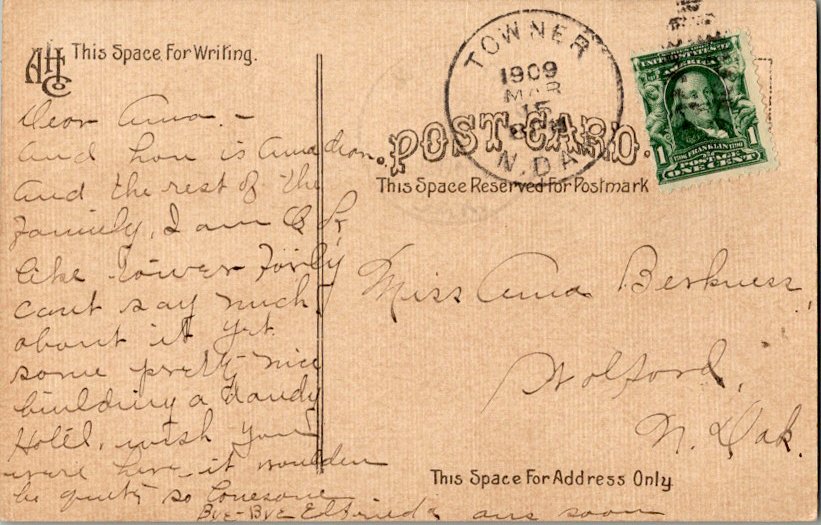 AHC Co
This Space For Writing.
Dear Anna. -
And how is Amadion.
And the rest of the
Family, I am O.K,
like Towner Fairly
cant say much
about it yet.
some pretty nice
building a dandy
Hotel. wish you
were here it woulden
be quite so lonesome
Bye-Bye Elfrieda ans soon
TOWNER
1909
MAR
15
N. DAK
POST CARD.
This Space Reserved for Postmark
UNITED STATES OF
AMERICA
FRANKLIN
1 POSTAGE 1
ONE CENT
Miss Anna Berkness,
Wolford,
N. Dak.
This Space For Address Only.